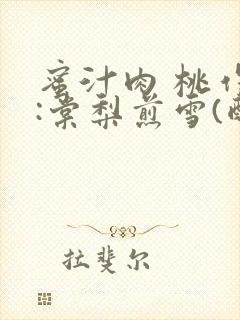 蜜汁肉桃作
:棠梨煎雪(
拉斐尔